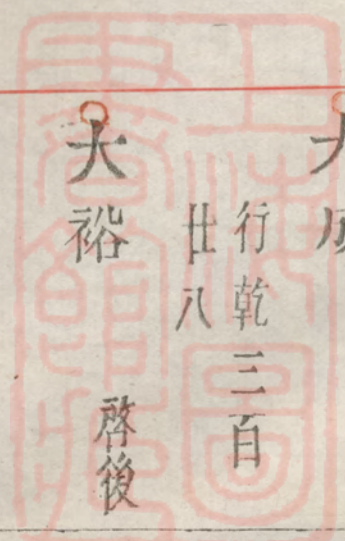 大成
行乾三百
廿八
大裕
啓後